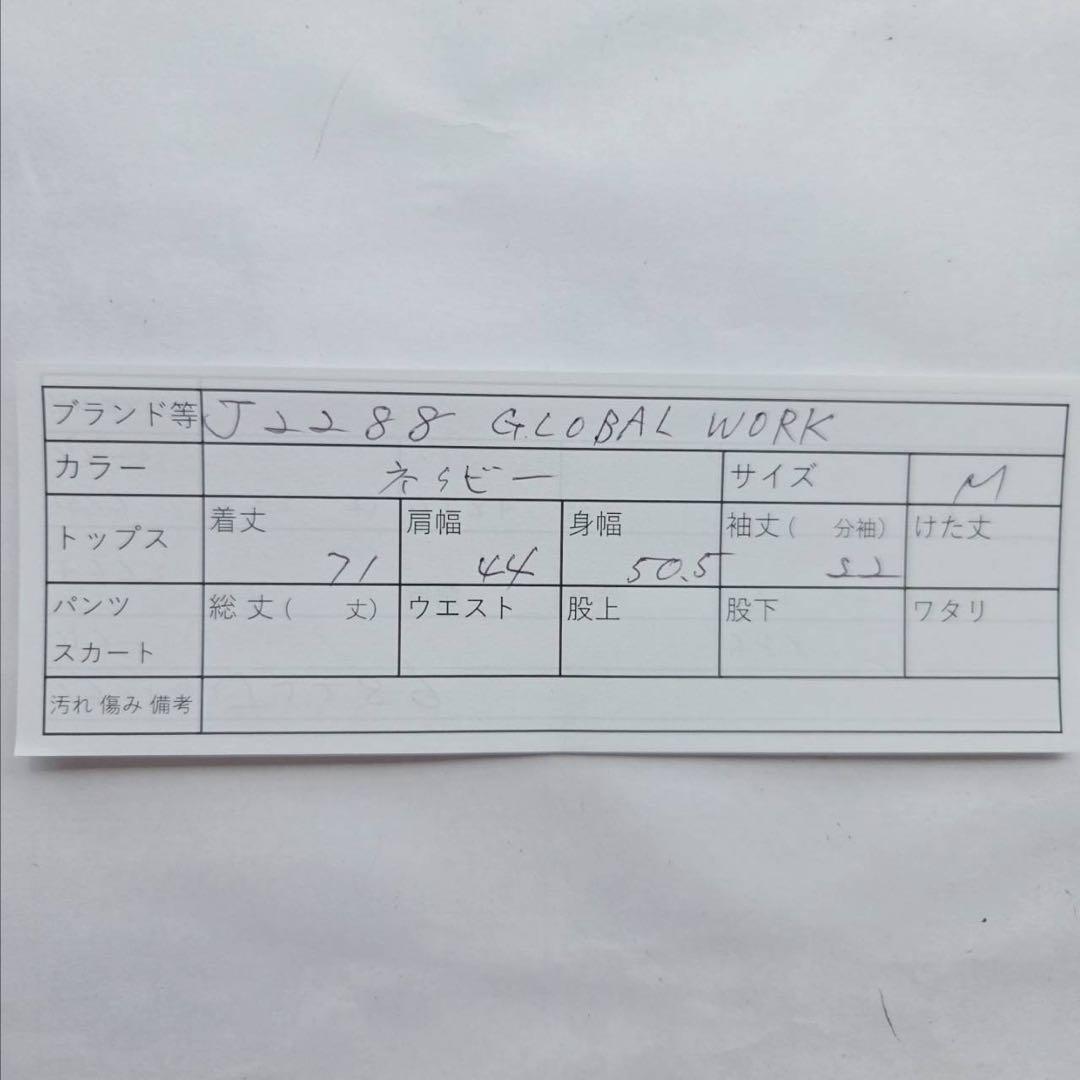 ブランド等 J2288 GLOBAL WORK
カラー ネイビー サイズ M
トップス 着丈 71 肩幅 44 身幅 50.5 袖丈( 分袖) けた丈
パンツ スカート 総丈( 丈) ウエスト 股上 股下 ワタリ
汚れ 傷み 備考